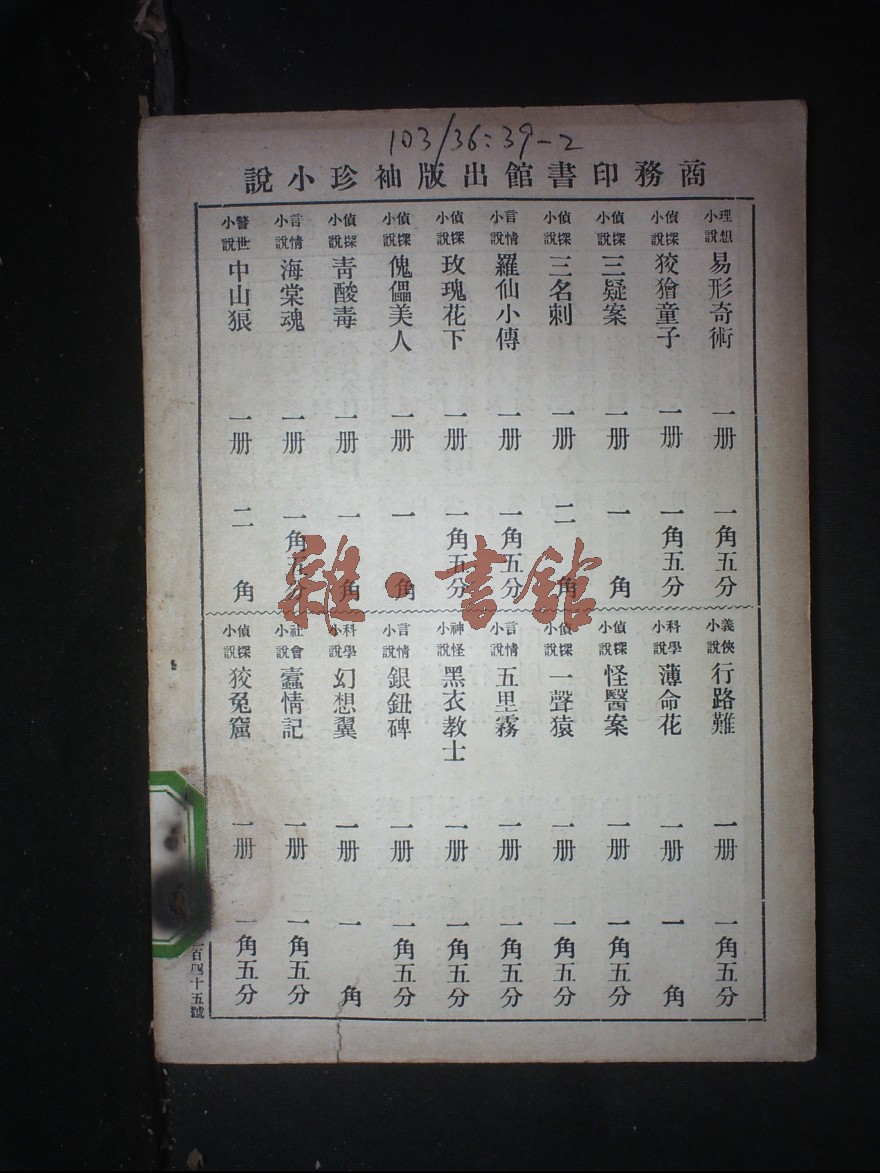 103/36:39-2
商務印書館出版袖珍小說
理想小說 易形奇術 一册 一角五分
偵探小說 狡獪童子 一册 一角五分
偵探小說 三疑案 一册 一角
偵探小說 三名刺 一册 二角
言情小說 羅仙小傳 一册 一角五分
偵探小說 玫瑰花下 一册 一角五分
偵探小說 傀儡美人 一册 一角
偵探小說 靑酸毒 一册 一角
言情小說 海棠魂 一册 一角五分
警世小說 中山狼 一册 二角
義俠小說 行路難 一册 一角五分
科學小說 薄命花 一册 一角
偵探小說 怪醫案 一册 一角五分
偵探小說 一聲猿 一册 一角五分
言情小說 五里霧 一册 一角五分
神怪小說 黑衣教士 一册 一角五分
言情小說 銀鈕碑 一册 一角五分
科學小說 幻想翼 一册 一角
社會小說 蠹情記 一册 一角五分
偵探小說 狡兔窟 一册 一角五分
百四十五號
雜·書館